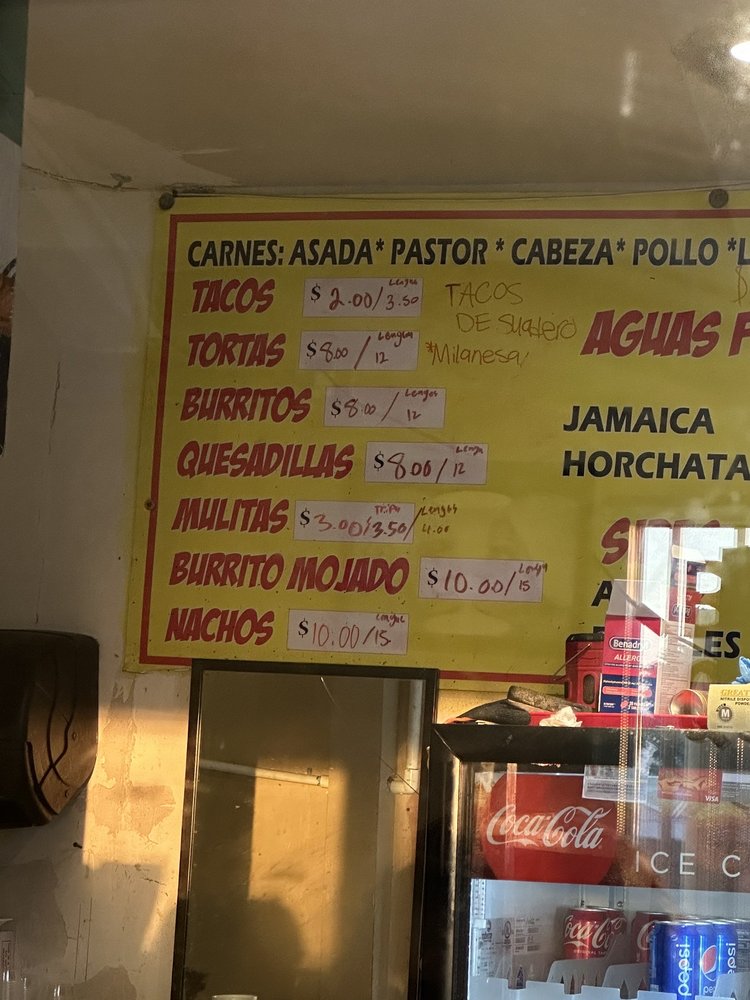 CARNES: ASADA* PASTOR * CABEZA* POLLO *L
TACOS $2.00/3.50 Lengua
TACOS
DE Suadero
TORTAS $8.00/12 Lengua
*Milanesa
AGUAS F
BURRITOS $8.00/12 Lengua
JAMAICA
QUESADILLAS $8.00/12 Lengua
HORCHATA
MULITAS $3.00/3.50 Tripa/Lengua 4.00
BURRITO MOJADO $10.00/15 Lengua
NACHOS $10.00/15 Lengua
Benadryl
ALLERGY
GREAT
M
VISA
Coca-Cola
ICE C
Coca-Cola
pepsi
pepsi